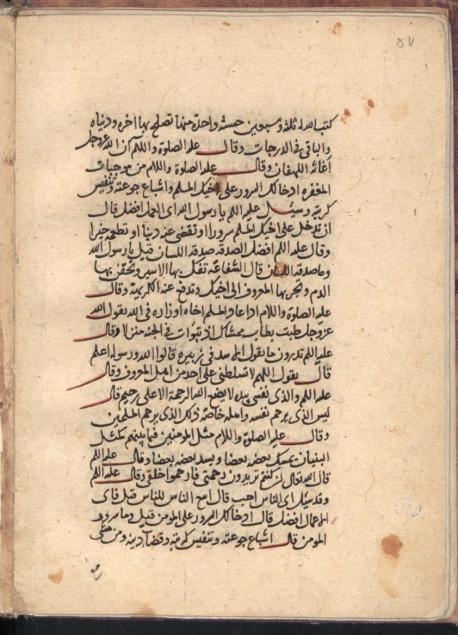 ٥٧
كتب الله له ثلثة وسبعين حسنة واحدة منها تصلح بها اخرة ودنياه
والباقي في الدرجات وقال عليه الصلوة والسلام ان الله عز وجل
اغاثة اللهفان وقال عليه الصلوة والسلام من موجبات
المغفرة ادخالك السرور على اخيك المسلم واشباع جوعته وتنفيس
كربته وسئل عليه السلم يا رسول الله اي العمل افضل قال
ان تدخل على اخيك المسلم سرورا او تقضي عنه دينا او تطعمه خبزا
وقال عليه السلم افضل الصدقة صدقة اللسان قيل يا رسول الله
وما صدقة اللسان قال الشفاعة تفك بها الاسير وتحقن بها
الدم وتجر بها المعروف الى اخيك وتدفع عنه الكريهة وقال
عليه الصلوة والسلام اذا عاد المسلم اخاه او زاره في الله يقول الله
عز وجل طبت وطاب ممشاك او تبوأت في الجنة منزلا وقال
عليه السلم تدرون ما يقول الاسد في زئيره قالوا الله ورسوله اعلم
قال يقول اللهم لا تسلطني على احد من اهل المعروف وقال
عليه السلم والذي نفسي بيده لا يضع الله الرحمة الا على رحيم قال
ليس الذي يرحم نفسه واهله خاصة ذلك الذي يرحم المسلمين
وقال عليه الصلوة والسلام مثل المومنين فيما بينهم كمثل
البنيان يمسك بعضه بعضا ويسد بعضه بعضا وقال عليه السلم
قال الله تعالى ان كنتم تريدون رحمتي فارحموا خلقي وقال عليه السلم
وقد سئل اي الناس احب قال انفع الناس للناس قيل فاي
الاعمال افضل قال ادخالك السرور على المومن قيل وما سرور
المومن قال اشباع جوعته وتنفيس كربته وقضاء دينه ومن مشى